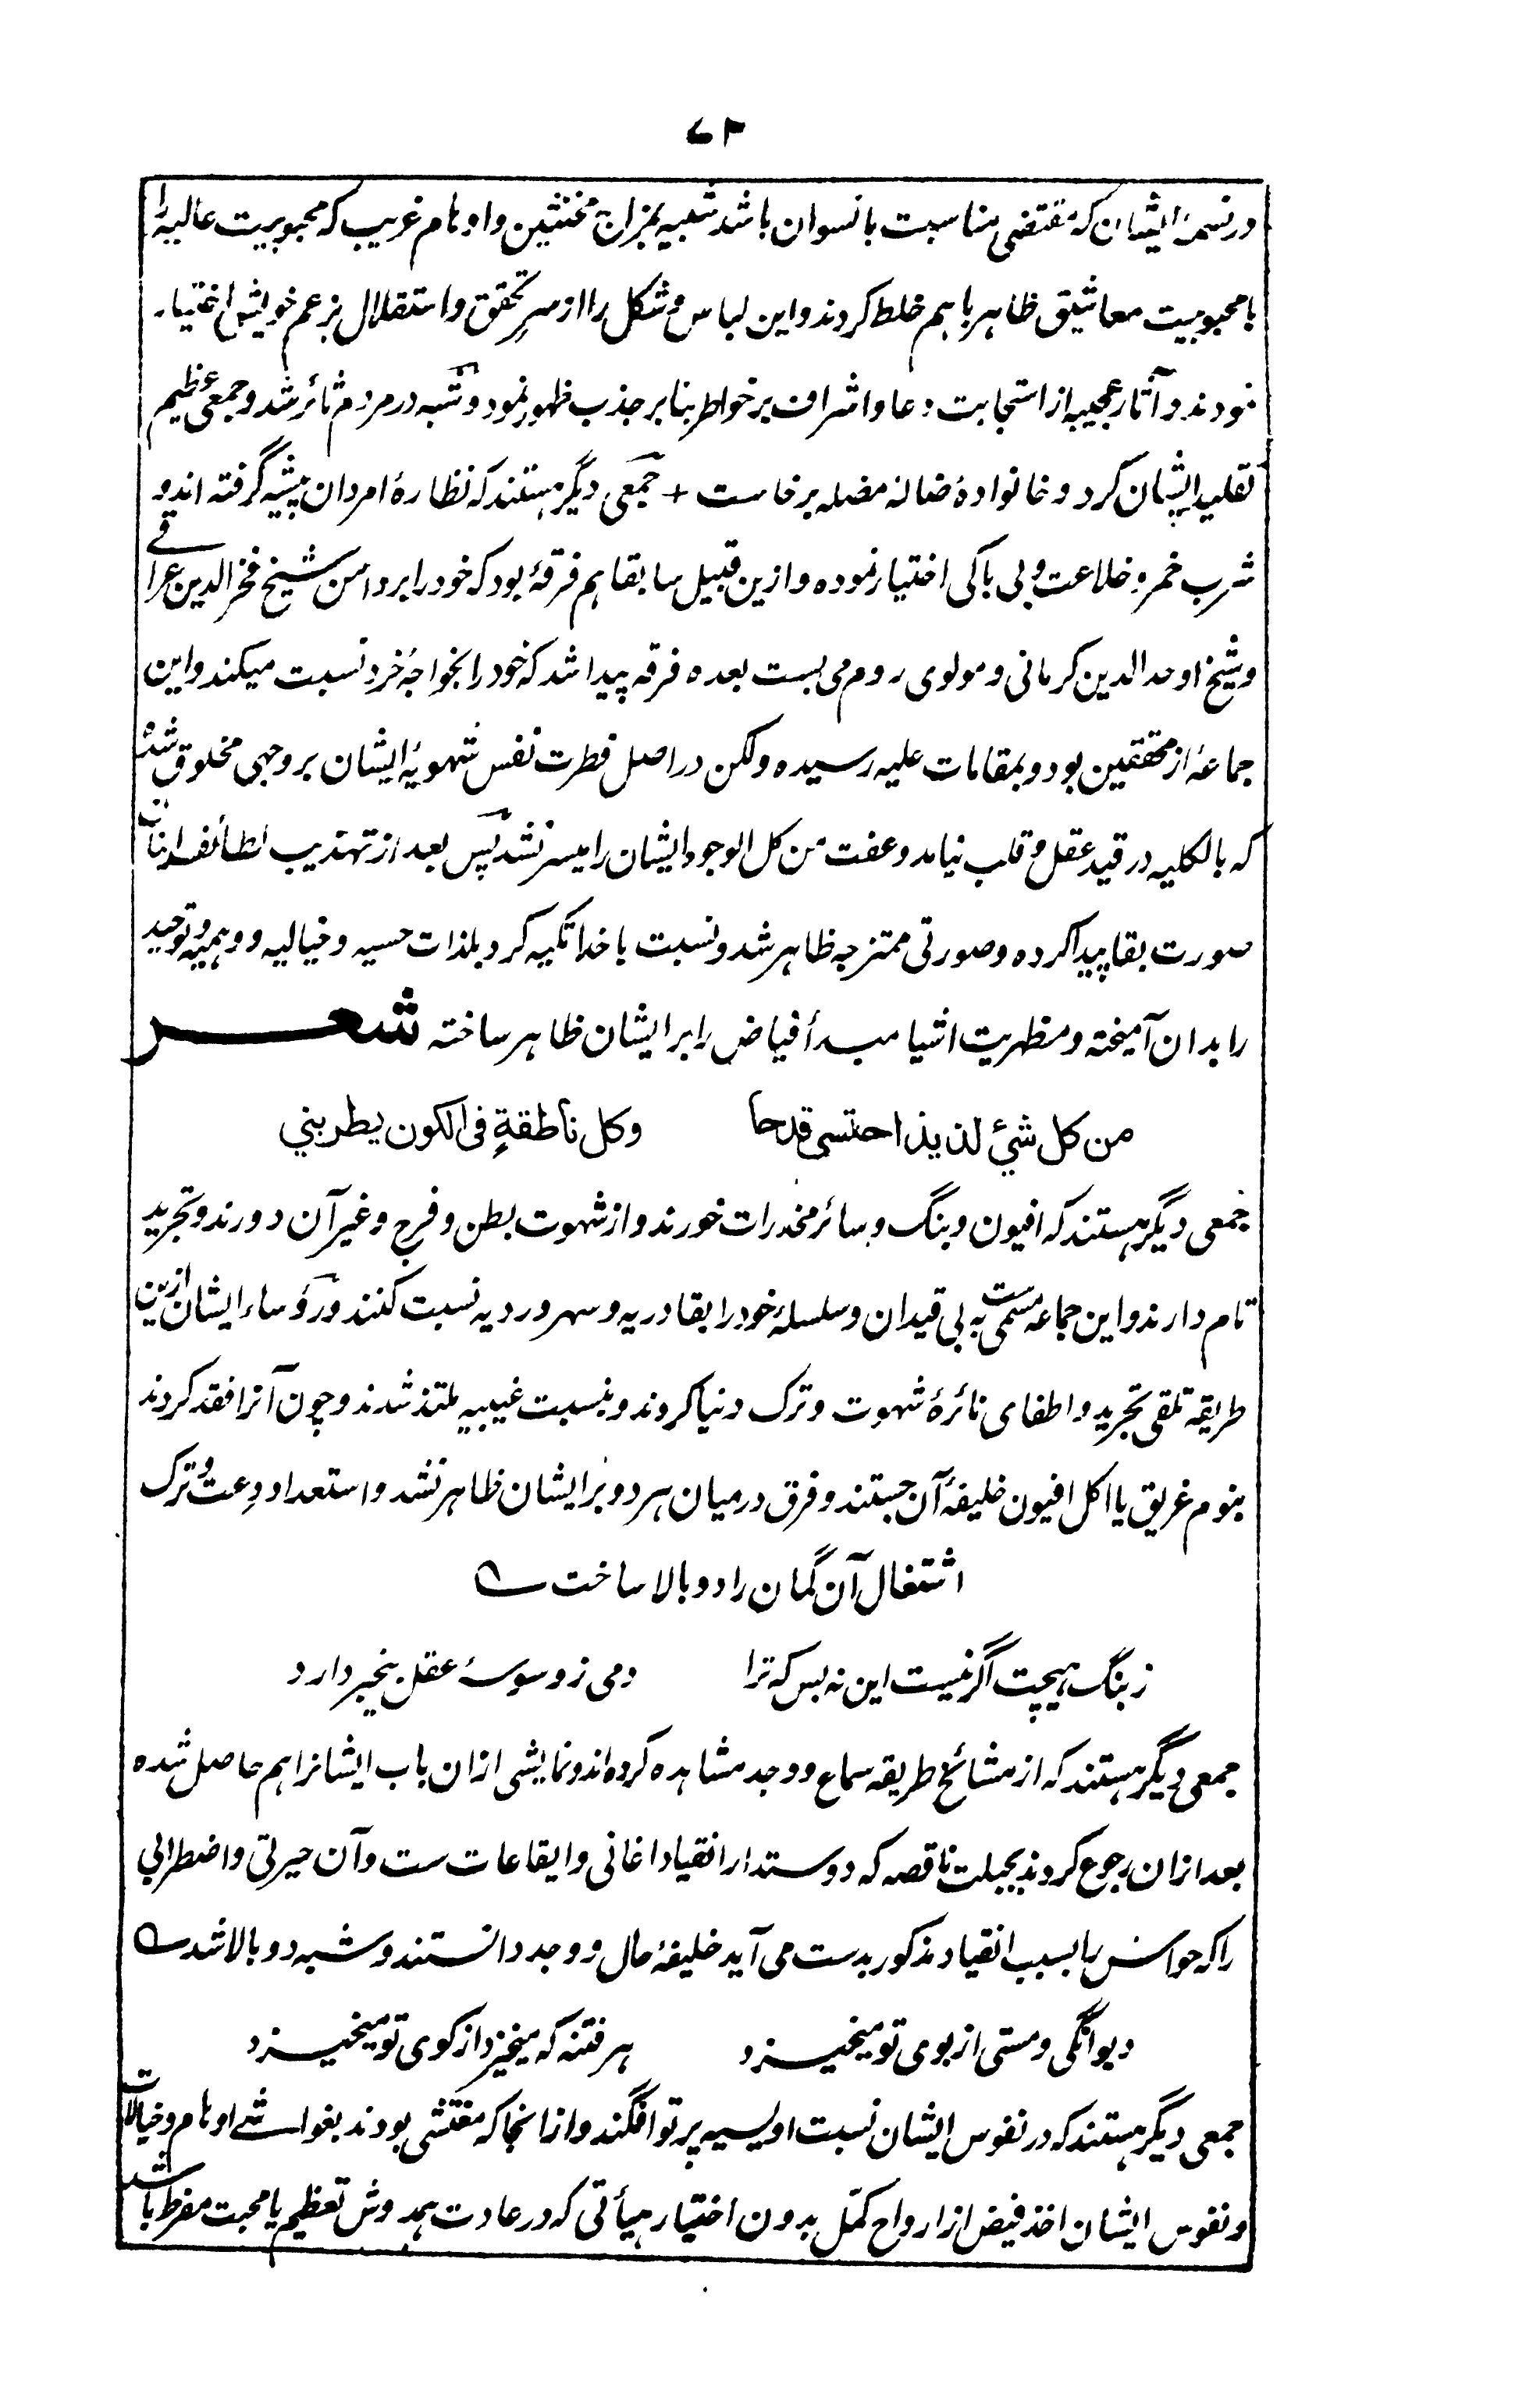 ۷۳
در نسمۂ ایشان که مقتضی مناسبت با نسوان باشد شبیه بمزاج مخنثین و اوهام غریب که محبوبیت عالیه را
با محبوبیت معاشیق ظاهر با هم خلط کردند و این لباس و شکل را از سر تحقق و استقلال بزعم خویش اختیار
نمودند و آثار عجیبه از استجابت دعا و اشراف بر خواطر بنا بر جذب ظهور نمود و شبه در مردم ثائر شد و جمعی عظیم
تقلید ایشان کرد و خانوادۂ ضاله مضله برخاست + جمعی دیگر هستند که نظارۂ امردان پیشه گرفته اند و
شرب خمر و خلاعت و بی باکی اختیار نموده و ازین قبیل سابقا هم فرقۂ بود که خود را بر دامن شیخ فخر الدین عراقے
و شیخ اوحد الدین کرمانی و مولوی روم می بست بعده فرقه پیدا شد که خود را بخواجۂ خرد نسبت میکند و این
جماعۂ از محققین بود و بمقامات علیه رسیده ولکن در اصل فطرت نفس شهویۂ ایشان بر وجهی مخلوق شده
که بالکلیه در قید عقل و قلب نیامد و عفت من کل الوجوه ایشان را میسر نشد پس بعد از تهذیب لطائف ایشان
صورت بقا پیدا کرده و صورتی ممتزجه ظاهر شد و نسبت با خدا تکیه کرد بلذات حسیه و خیالیه و وهمیه و توحید
را بدان آمیخته و مظهریت اشیا مبدأ فیاض را بر ایشان ظاهر ساخته شعـــر
من كل شئ لذيذ احتسى قدحا وكل ناطقةٍ فى الكون يطربني
جمعی دیگر هستند که افیون و بنگ و سائر مخدرات خورند و از شهوت بطن و فرج و غیر آن دورند و تجرید
تام دارند و این جماعه مسمی ست به بی قیدان و سلسلۂ خود را بقادریه و سهروردیه نسبت کنند و رؤساء ایشان ازین
طریقه تلقی تجرید و اطفای نائرۂ شهوت و ترک دنیا کردند و بنسبت غیبیه ملتذ شدند و چون آنرا فقد کردند
بنوم غریق یا اکل افیون خلیفۂ آن جستند و فرق درمیان هر دو بر ایشان ظاهر نشد و استعداد دعت و ترک
اشتغال آن گمان را دوبالا ساخت ؎
ز بنگ هیچت اگر نیست این نه بس که ترا دمی ز وسوسۂ عقل بیخبر دارد
جمعی دیگر هستند که از مشائخ طریقه سماع و وجد مشاهده کرده اند و نمایشی از ان باب ایشانرا هم حاصل شده
بعد از ان رجوع کردند بجبلت ناقصه که دوستدار انقیاد اغانی و ایقاعات ست و آن حیرتی و اضطرابی
را که حواس را بسبب انقیاد مذکور بدست می آید خلیفۂ حال و وجد دانستند و شبه دوبالا شد ؎
دیوانگی و مستی از بوی تو میخیـزد هر فتنه که میخیزد از کوی تو میخیـزد
جمعی دیگر هستند که در نفوس ایشان نسبت اویسیه پرتو افگند و از انجا که مغتشی بودند بغواشے اوهام و خیالات
و نفوس ایشان اخذ فیض از ارواح کمّل بدون اختیار هیأتی که در عادت همدوش تعظیم یا محبت مفرط باشد